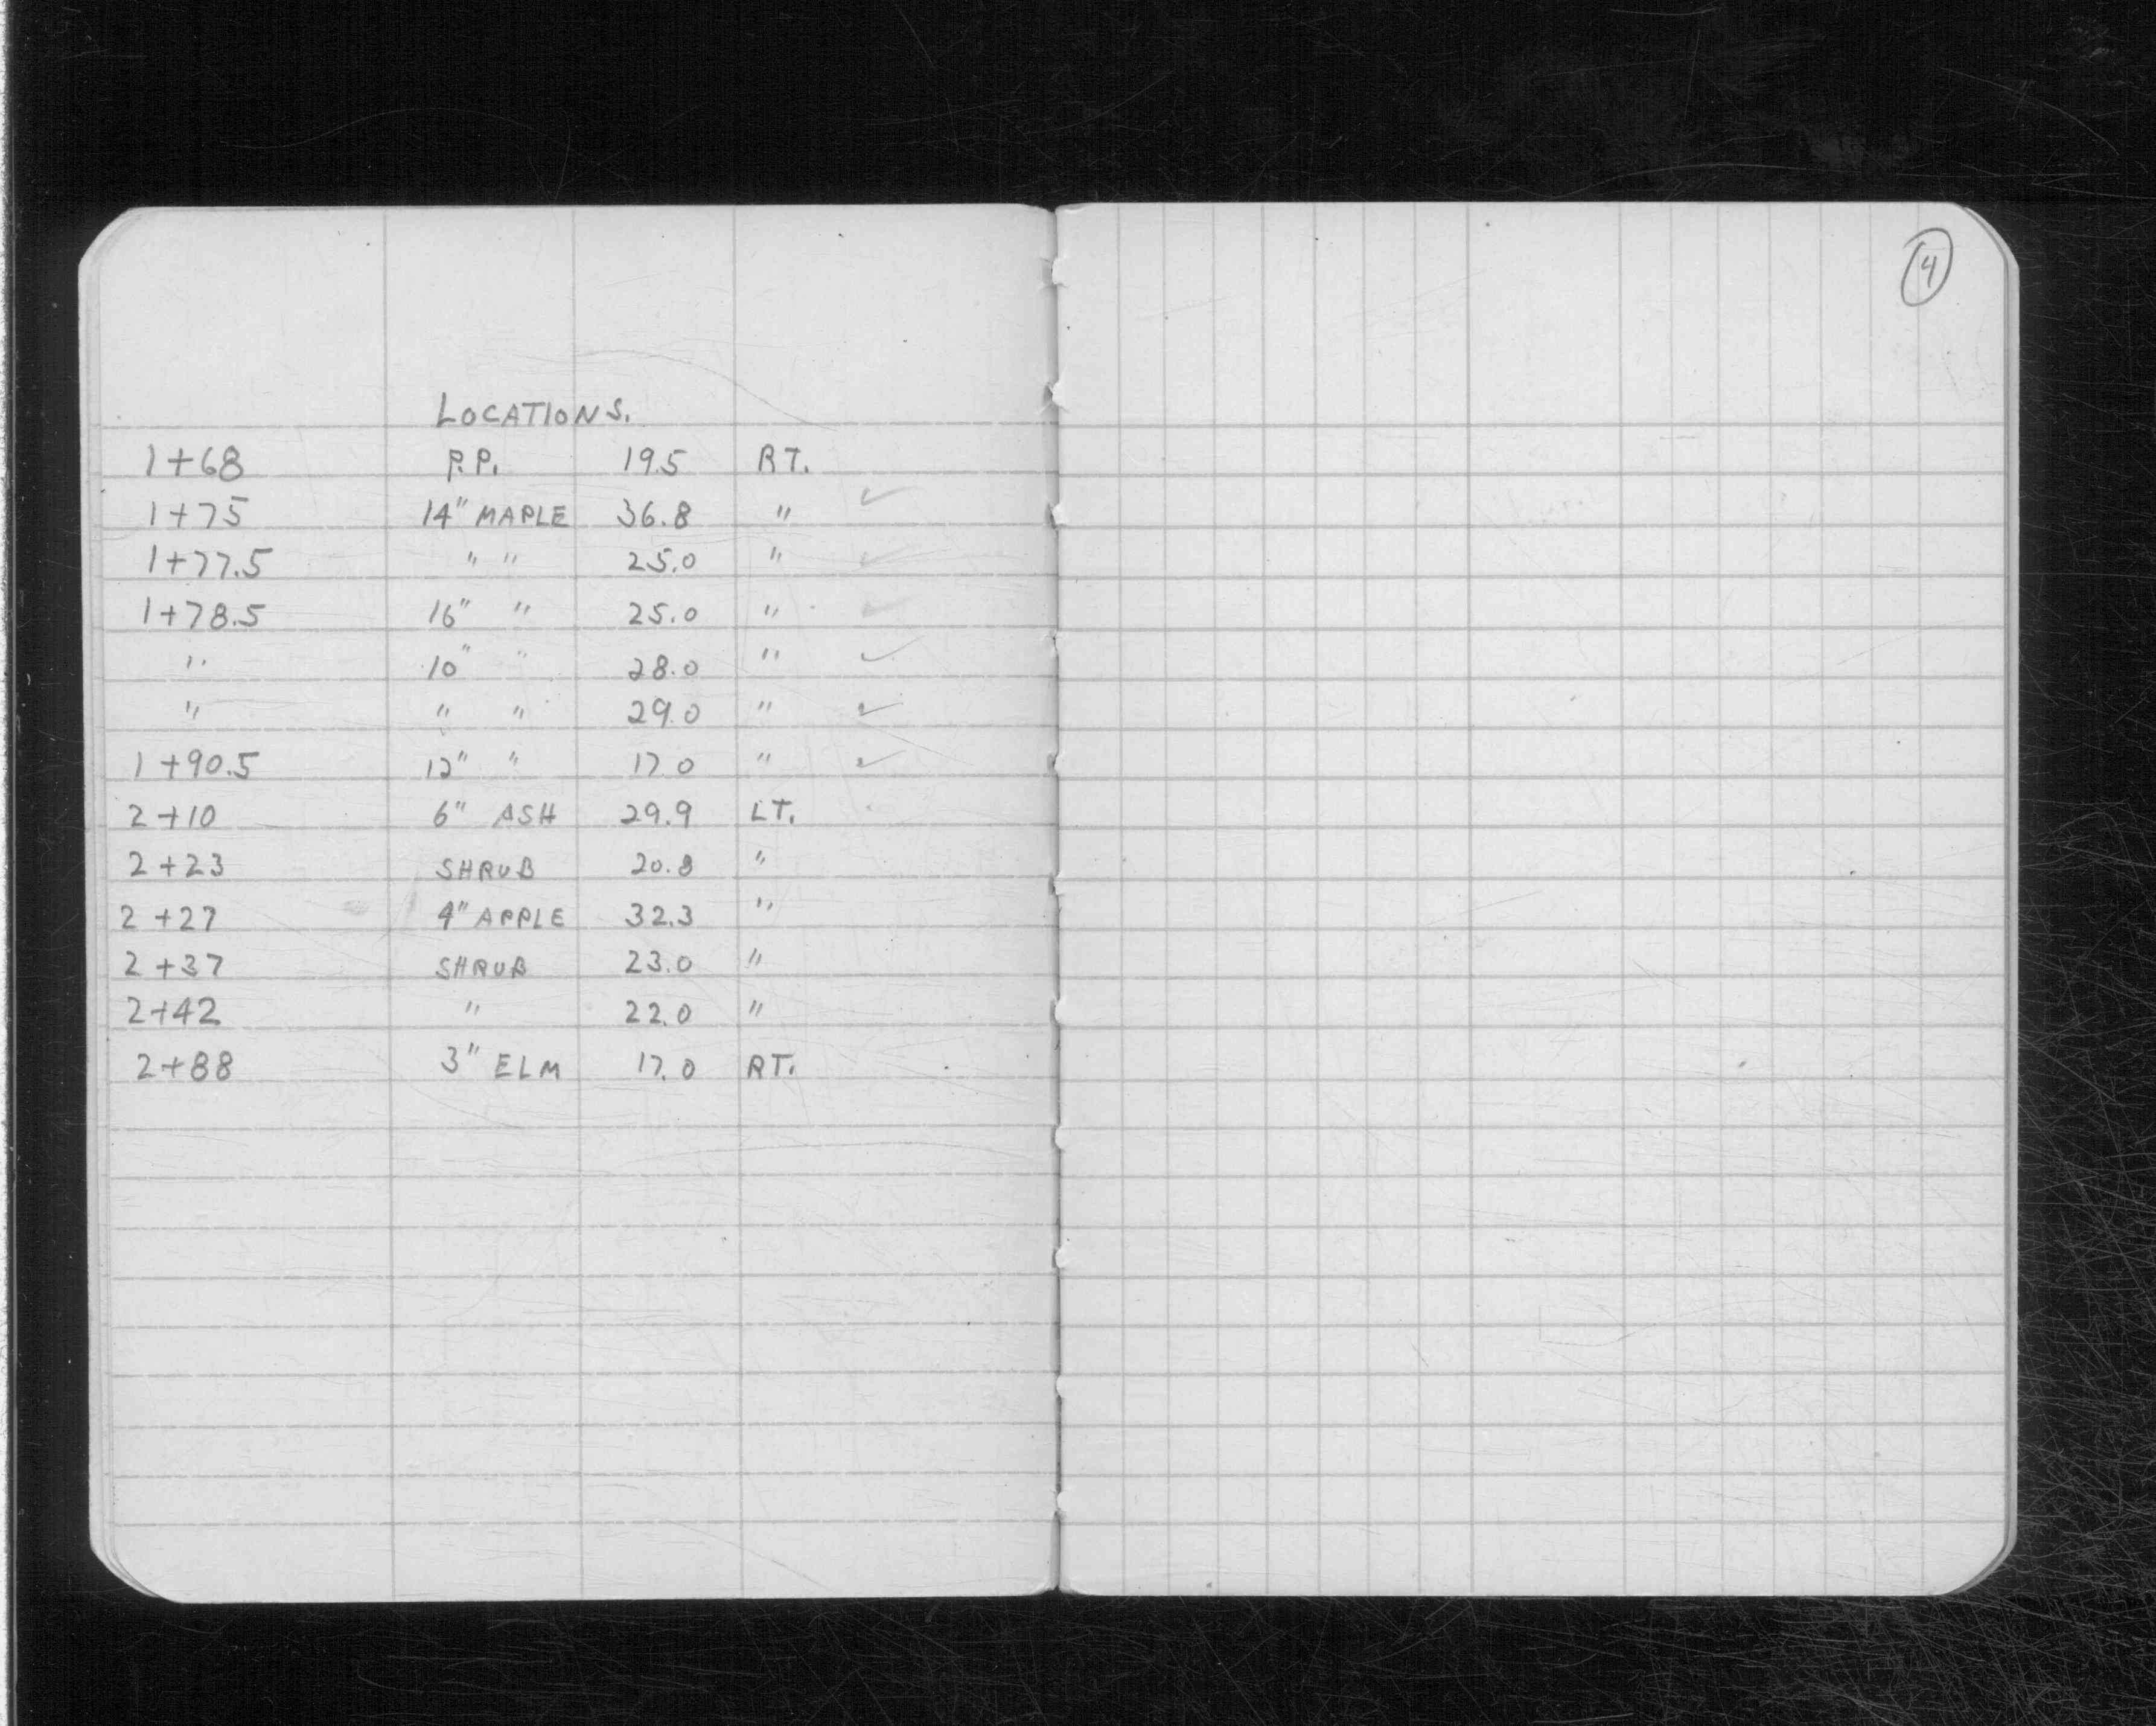 LOCATIONS.
1+68 P.P. 19.5 RT.
1+75 14" MAPLE 36.8 " ✓
1+77.5 " " 25.0 " ✓
1+78.5 16" " 25.0 " ✓
" 10" " 28.0 " ✓
" " " 29.0 " ✓
1+90.5 12" " 17.0 " ✓
2+10 6" ASH 29.9 LT.
2+23 SHRUB 20.8 "
2+27 4" APPLE 32.3 "
2+37 SHRUB 23.0 "
2+42 " 22.0 "
2+88 3" ELM 17.0 RT.
4